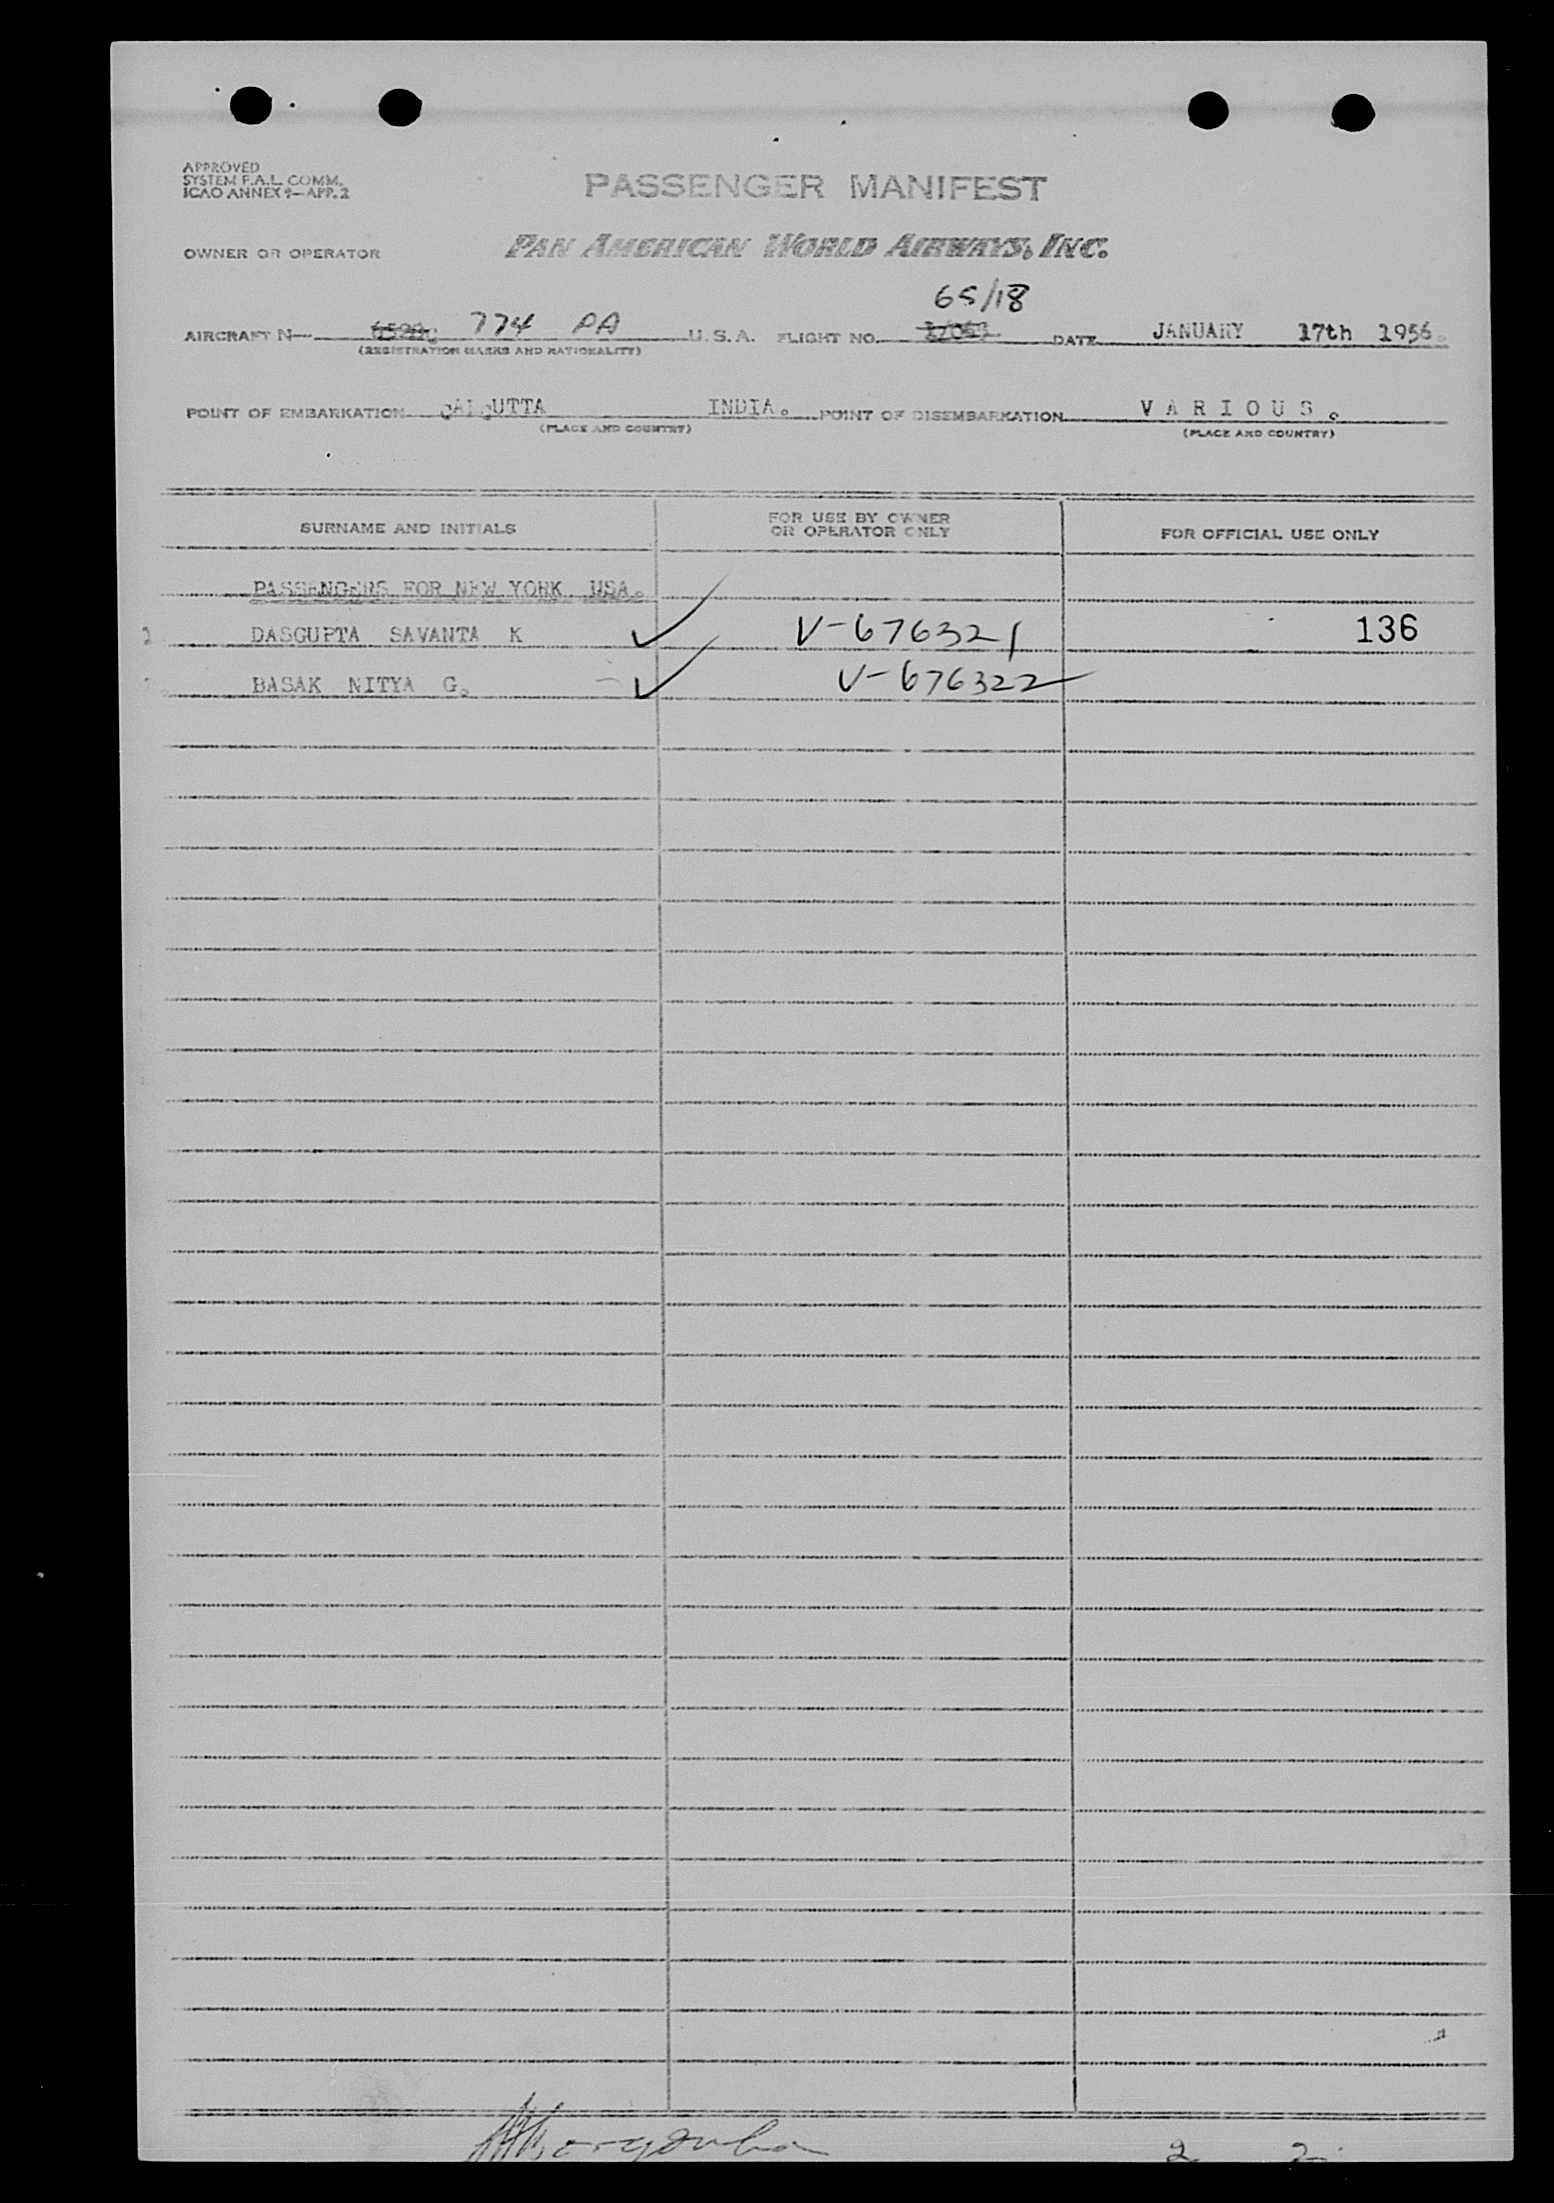 APPROVED
SYSTEM F.A.L. COMM.
ICAO ANNEX 9—APP. 2
PASSENGER MANIFEST
OWNER OR OPERATOR PAN AMERICAN WORLD AIRWAYS, INC.
65/18
AIRCRAFT N— 774 PA U.S.A. FLIGHT NO. DATE JANUARY 17th 1956.
(REGISTRATION MARKS AND NATIONALITY)
POINT OF EMBARKATION CALCUTTA INDIA. POINT OF DISEMBARKATION VARIOUS.
(PLACE AND COUNTRY) (PLACE AND COUNTRY)
SURNAME AND INITIALS FOR USE BY OWNER OR OPERATOR ONLY FOR OFFICIAL USE ONLY
PASSENGERS FOR NEW YORK USA.
DASGUPTA SAVANTA K ✓ V-676321 136
BASAK NITYA G. ✓ V-676322
2 2